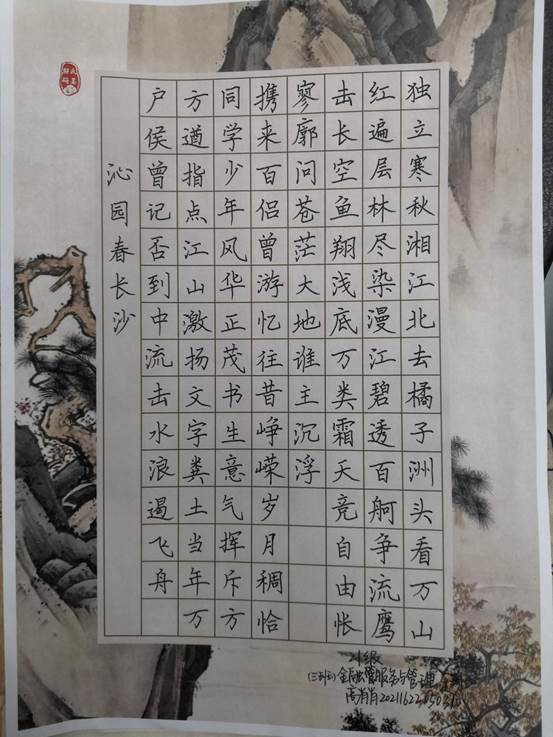 独立寒秋湘江北去橘子洲头看万山
红遍层林尽染漫江碧透百舸争流鹰
击长空鱼翔浅底万类霜天竞自由怅
寥廓问苍茫大地谁主沉浮
携来百侣曾游忆往昔峥嵘岁月稠恰
同学少年风华正茂书生意气挥斥方
方遒指点江山激扬文字粪土当年万
户侯曾记否到中流击水浪遏飞舟
沁园春长沙
21级
(三班)金融服务与管理
周肖肖